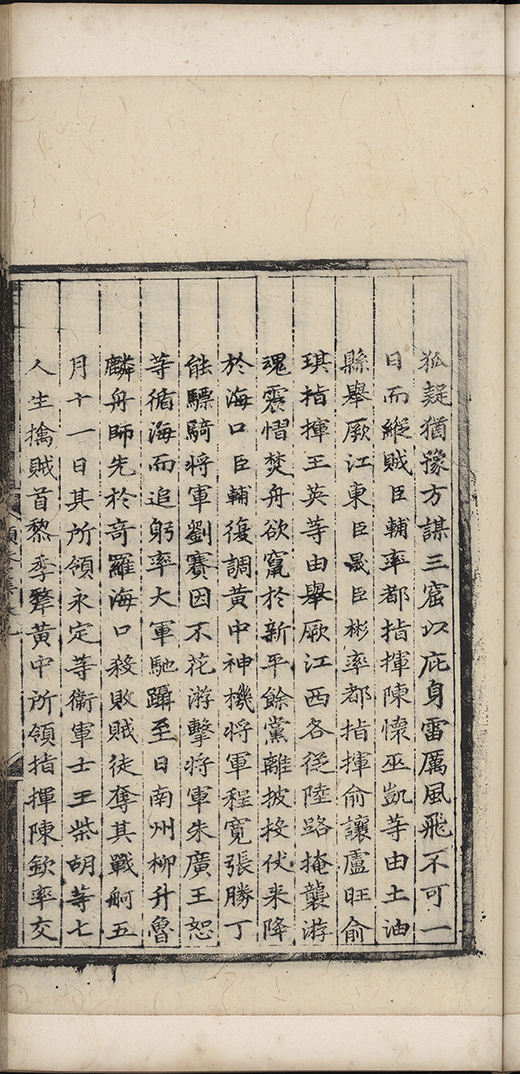 狐疑猶豫方謀三窟以庇身雷厲風飛不可一
日而縱賊臣輔率都指揮陳懷巫凱等由土油
縣舉厥江東臣晟臣彬率都指揮俞讓盧旺俞
琪指揮王英等由舉厥江西各從陸路掩襲游
魂震慴焚舟欲竄於新平餘黨離披投伏来降
於海口臣輔復調黄中神機將軍程寬張勝丁
能驃騎將軍劉賽因不花游擊將軍朱廣王恕
等循海而追躬率大軍馳躡至日南州柳升魯
麟舟師先於奇羅海口殺敗賊徒奪其戰舸五
月十一日其所領永定等衞軍士王柴胡等七
人生擒賊首黎季犛黄中所領指揮陳欽率交